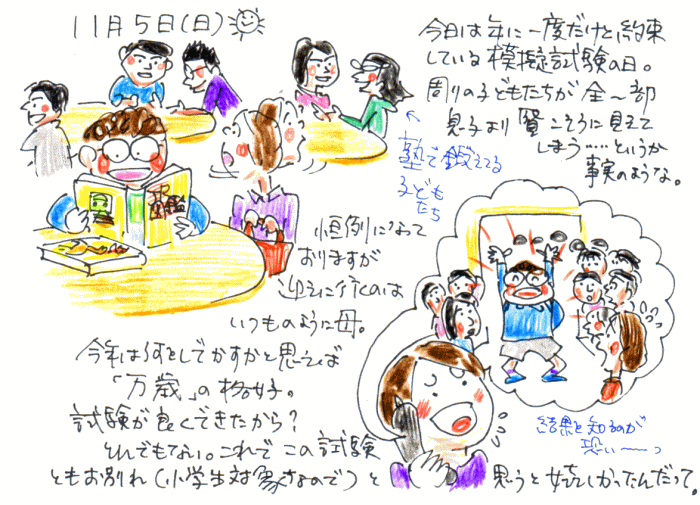 11月5日(日)
今日は年に一度だけと約束
している模擬試験の日。
周りの子どもたちが全〜部
息子より賢こそうに見えて
しまう……というか
事実のような。
←塾で鍛えてる
子ども
たち
恒例になって
おりますが
迎えに行くのは
いつものように母。
今年は何をしでかすかと思えば
「万歳」の格好。
試験が良くできたから?
とんでもない。これでこの試験
ともお別れ(小学生対象なので)と
思うと嬉しかったんだって。
結果を知るのが
恐い〜〜っ